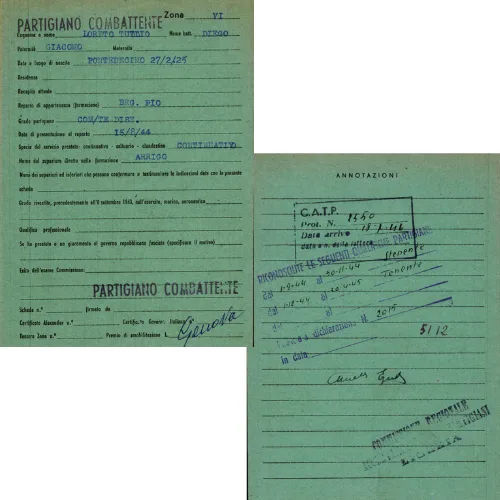 PARTIGIANO COMBATTENTE Zona VI
Cognome e nome LORETO TULLIO Nome batt. DIEGO
Paternità GIACOMO Maternità
Data e luogo di nascita PONTEDECIMO 27/2/25
Residenza
Recapito attuale
Reparto di appartenenza (formazione) BRG. PIO
Grado partigiano COM/TE DIST.
Data di presentazione al reparto 15/8/44
Specie del servizio prestato: continuativo - saltuario - clandestino CONTINUATIVO
Nome del superiore diretto nella formazione ARRIGO
Nomi dei superiori ed inferiori che possono confermare e testimoniare le indicazioni date con la presente
scheda
Grado rivestito, precedentemente all'8 settembre 1943, nell'esercito, marina, aeronautica
Qualifica professionale
Se ha prestato o no giuramento al governo repubblicano fascista (specificare il motivo)
Esito dell'esame Commissione:
PARTIGIANO COMBATTENTE
Scheda n. firmato da
Certificato Alexander n. Certificato Generi Italiani
Tessera Zona n. Premio di smobilitazione L.
Genova
ANNOTAZIONI
C.A.T.P.
Prot. N. 1550
Data arrivo
data e n. della lettera
RICONOSCIUTE LE SEGUENTI QUALIFICHE PARTIGIANE
dal 1-9-44 al 30-11-44
dal 1-12-44 al 30-4-45 Tenente
dal al
dichiarazione N. 2015
in data
5/12
COMMISSIONE REGIONALE
LIGURIA